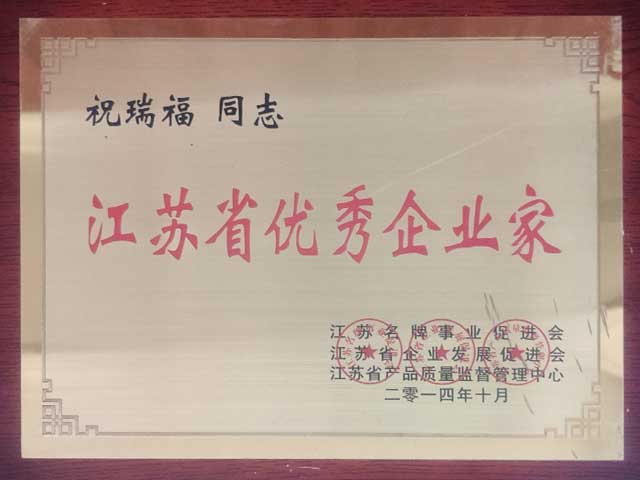 祝瑞福 同志
江苏省优秀企业家
江苏名牌事业促进会
江苏省企业发展促进会
江苏省产品质量监督管理中心
二零一四年十月